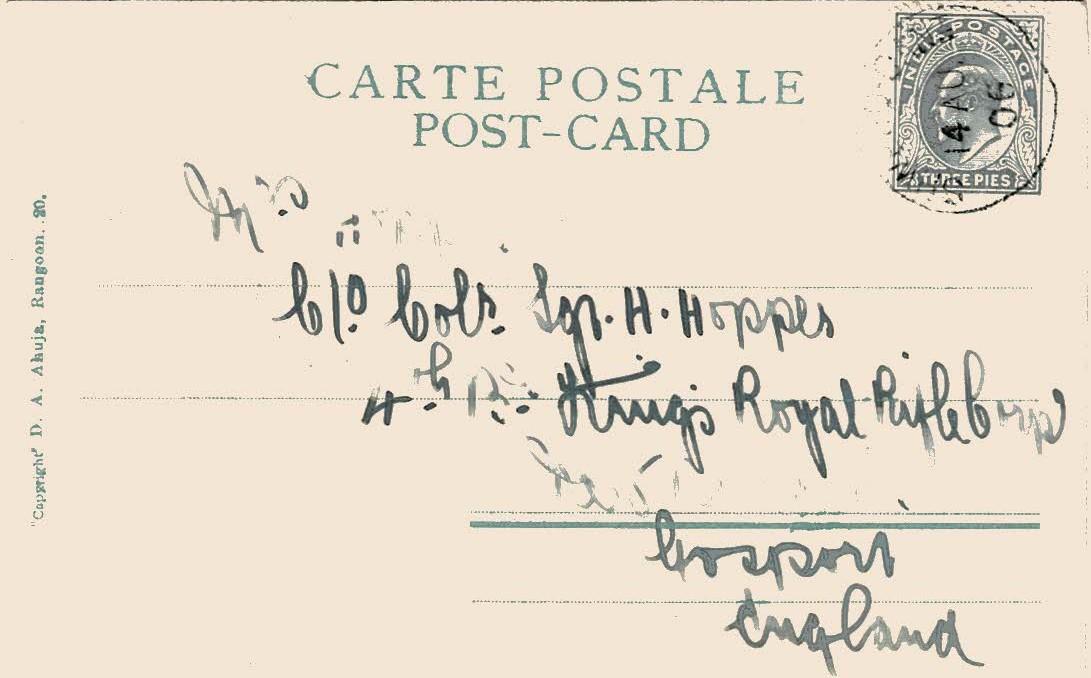 CARTE POSTALE
POST-CARD
INDIA POSTAGE
14 AU
06
THREE PIES
C/o Colr. Sgt. H. Hopper
4th Bn. Kings Royal Rifle Corp
Gosport
England
"Copyright" D. A. Ahuja, Rangoon. 20.